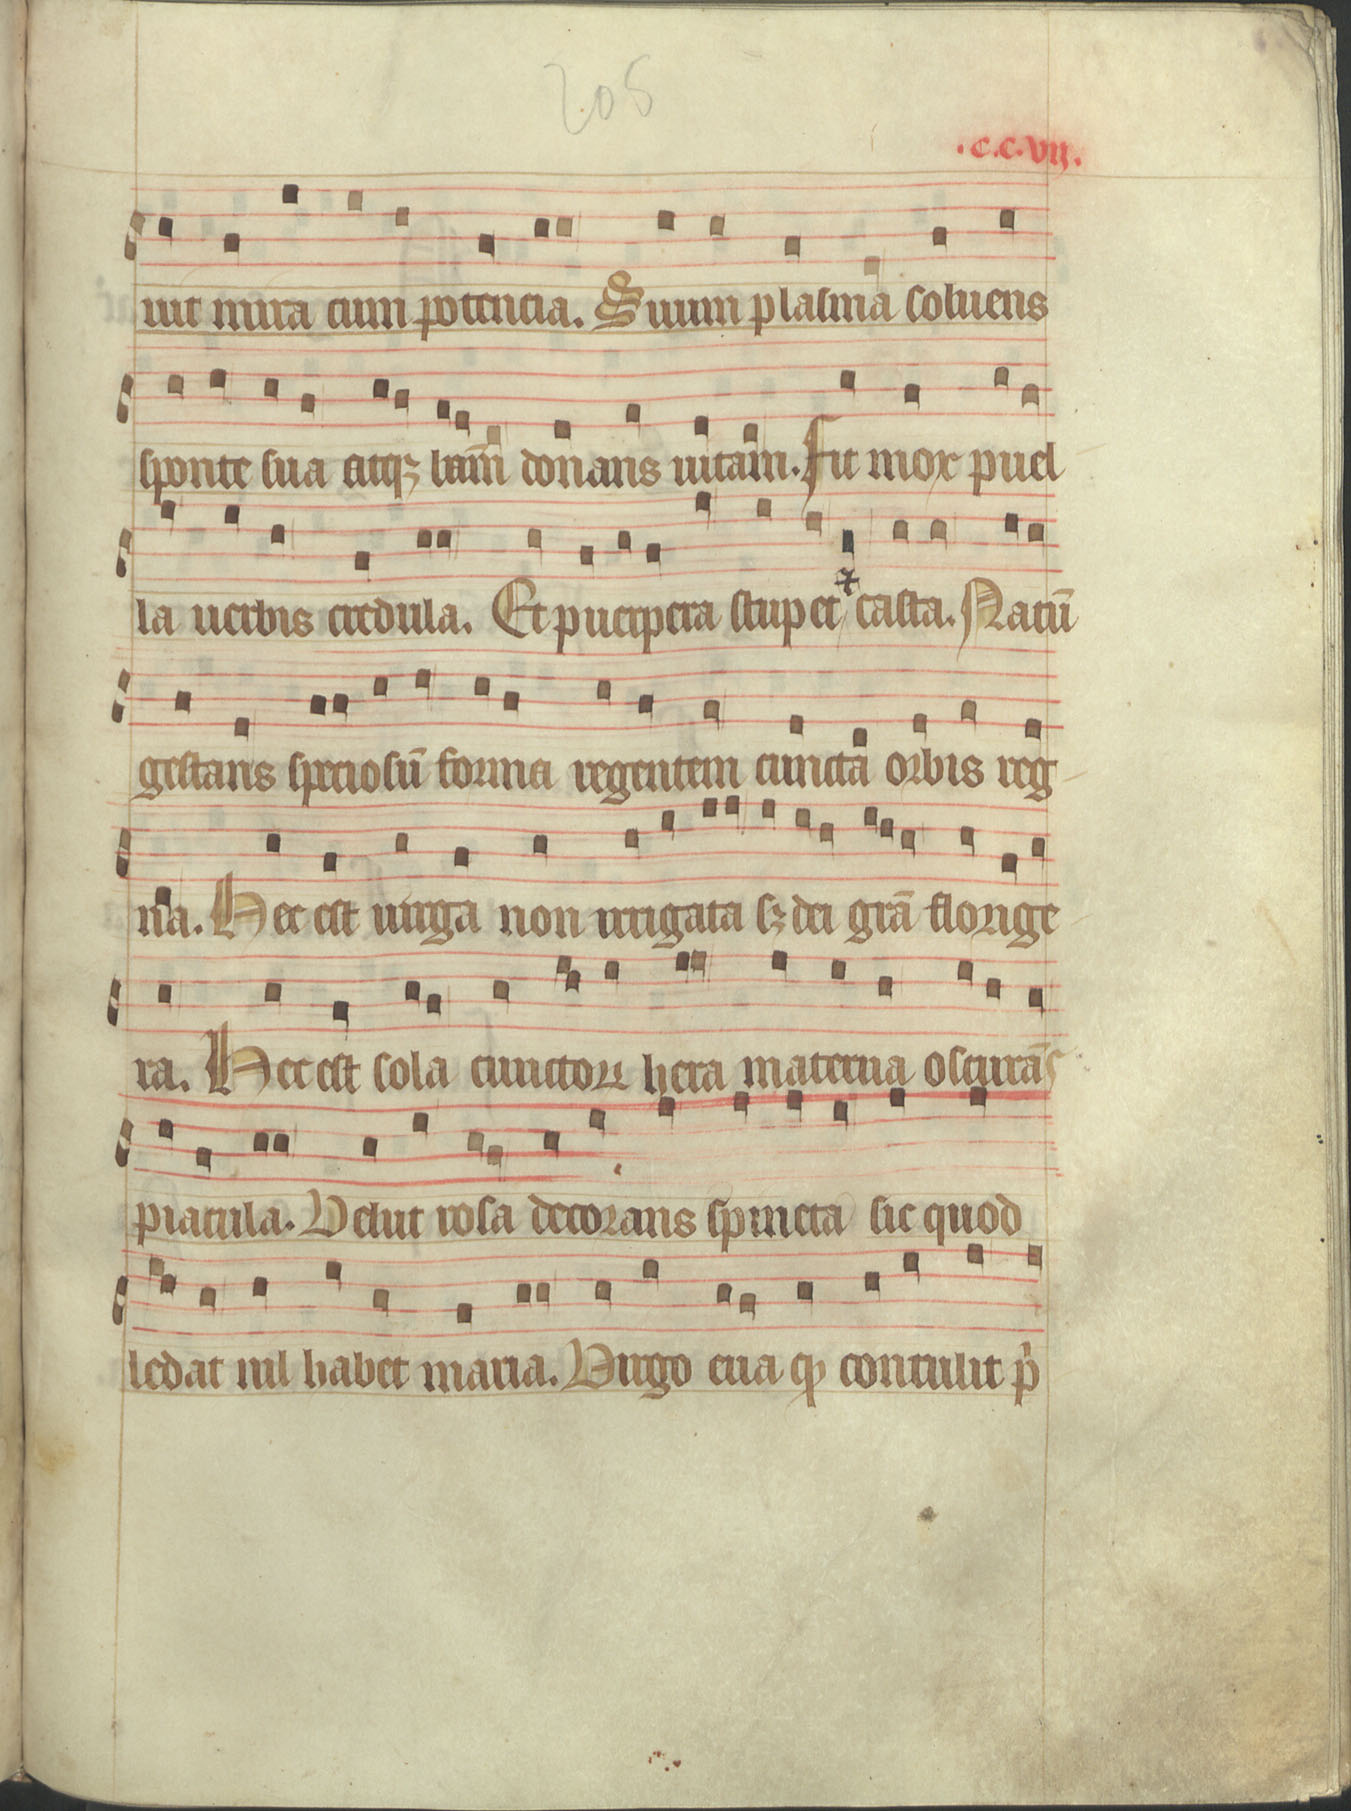 206
.c.c.vij.
uit mira cum potencia. Suum plasma soluens
sponte sua eiusqꝫ lum̄ donans uitam. Fit mox puel
la uerbis credula. Et puerpera stupet ⁊ casta. Natū
gestans speciosū forma regentem cuncta orbis reg
na. Hec est uirga non irrigata sꝫ dei grā florige
ra. Hec est sola cunctoꝝ hera materna oscurās
piacula. Velut rosa decorans spineta sic quod
ledat nil habet maria. Virgo eua qꝫ contulit p̄